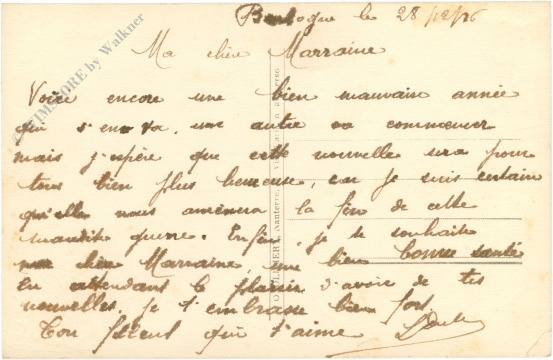 Boulogne le 28/12/16
Ma chère Marraine
Voici encore une bien mauvaise année
qui s'en va, une autre va commencer
mais j'espère que cette nouvelle sera pour
tous bien plus heureuse, car je suis certain
qu'elle nous amènera la fin de cette
maudite guerre. Enfin, je te souhaite
ma chère Marraine, une bien bonne santé
En attendant le plaisir d'avoir de tes
nouvelles, je t'embrasse bien fort.
Ton filleul qui t'aime
by Walkner
Nanterre